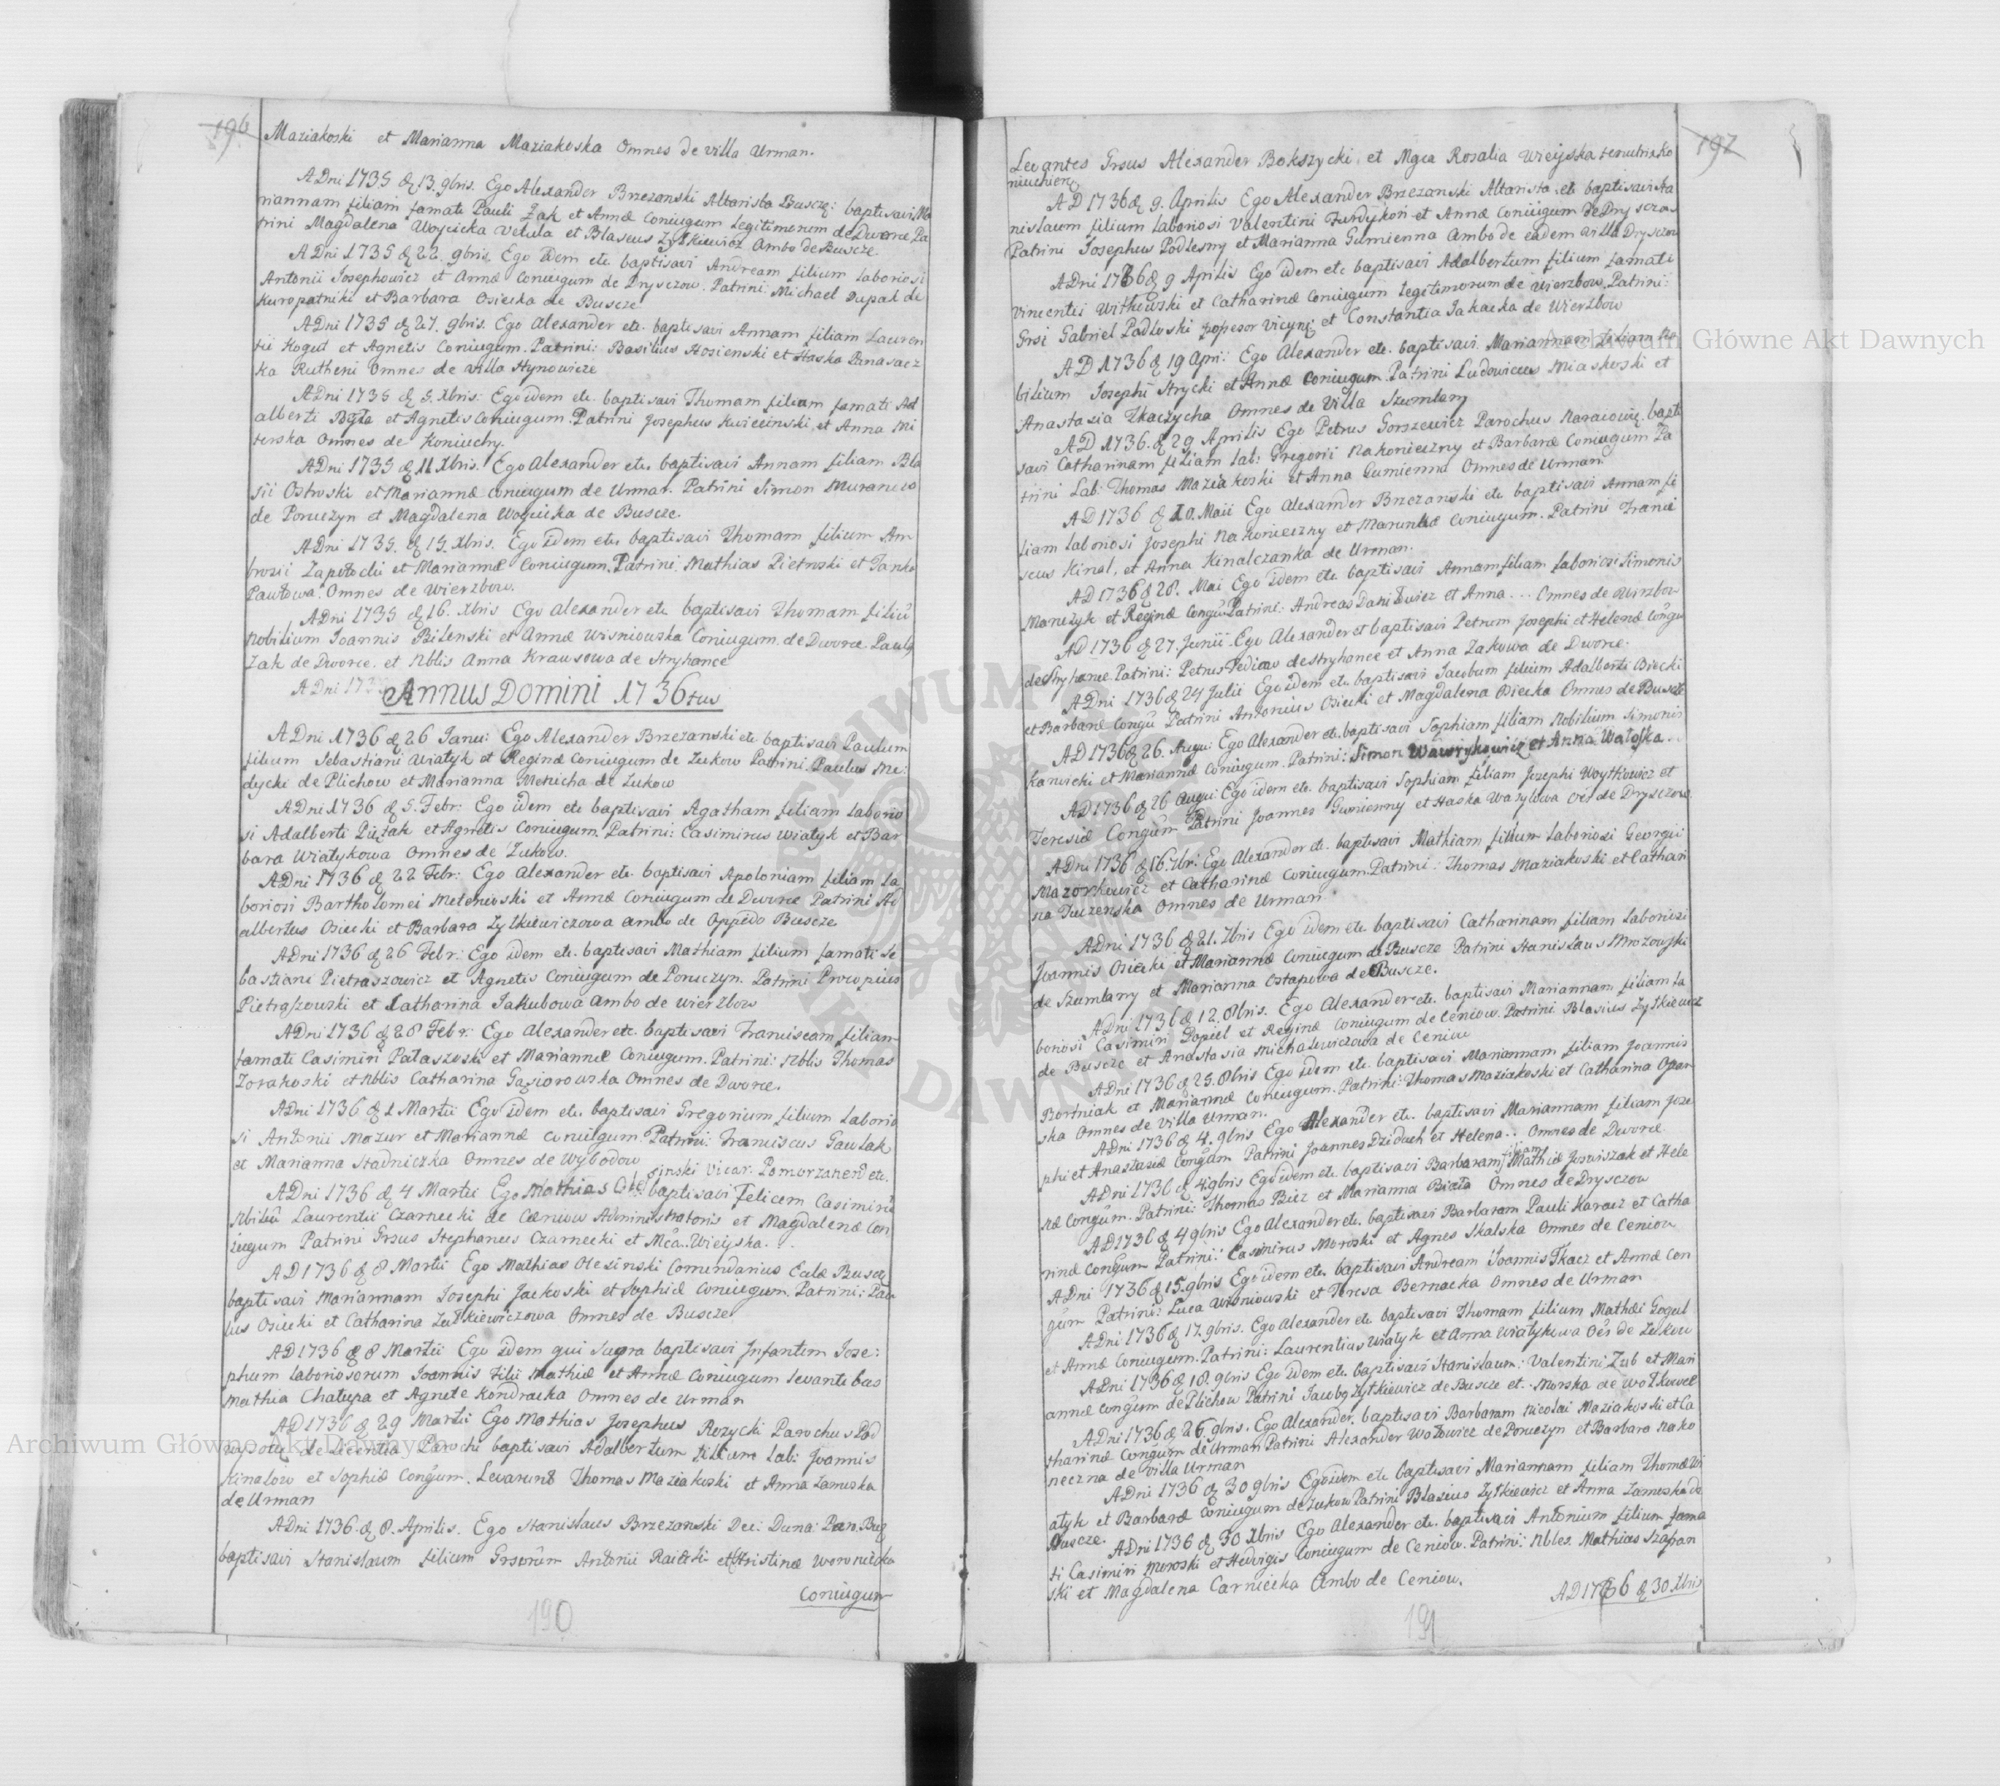 196
Maziakoski et Marianna Maziakoska Omnes de villa Urman.
ADni 1735 d 13. 9bris. Ego Alexander Brzezanski Altarista Buscze: baptisavi Ma
riannam filiam famati Pauli Żak et Annæ Coniugum legitimorum de Dworce Pa
trini Magdalena Woycicka Vetula et Blaseus Zytkiewicz Ambo de Buscze
ADni 1735 d 22. 9bris. Ego idem etc. baptisavi Andream filium laboriosi
Antonii Josephowicz et Annæ Coniugum de Dryszczow. Patrini Michael Dupak de
Kuropatniki et Barbara Osiecka de Buscze
ADni 1735 d 27. 9bris. Ego Alexander etc. baptisavi Annam filiam Lauren
tii Kogut et Agnetis Coniugum. Patrini: Basilius Hosienski et Haska
ka Rutheni Omnes de Villa Hynowicze
ADni 1735 d 5. Xbris. Ego idem etc. baptisavi Thomam filium famati Ad
alberti et Agnetis Coniugum. Patrini Josephus Kwiecinski et Anna Mi
terska Omnes de Koniuchy.
ADni 1735 d 11 Xbris. Ego Alexander etc. baptisavi Annam filiam Bla
sii Ostroski et Mariannæ coniugum de Urman. Patrini Simon
de Poruczyn et Magdalena Woycicka de Buscze.
ADni 1735. d 15. Xbris. Ego idem etc. baptisavi Thomam filium Am
brosii Zapotocki et Mariannæ Coniugum. Patrini: Mathias Pietroski et Janka
Pawłowa. Omnes de Wierzbow.
ADni 1735 d 16. Xbris Ego Alexander etc. baptisavi Thomam filiu
Nobilium Joannis Bilenski et Annæ Wisniowska Coniugum de Dworce. Paulg
Zak de Dworce. et Nblis Anna Krausowa de Stryhance
ADni 173
Annus Domini 1736tus
ADni 1736 d 26 Janu: Ego Alexander Brzezanski etc baptisavi Paulum
filium Sebastiani Wiatyk et Reginæ Coniugum de Zukow Patrini Paulus Me:
dycki de Plichow et Marianna de Zukow
ADni 1736 d 5. Febr: Ego idem etc baptisavi Agatham filiam laborio
si Adalberti Pieżak et Agnetis Coniugum. Patrini: Casimirus Wiatyk et Bar
bara Wiatykowa Omnes de Zukow.
ADni 1736 d 22 Febr: Ego Alexander etc. baptisavi Apoloniam filiam la
boriosi Bartholomei Metenioski et Annæ Coniugum de Dworce Patrini Ad
albertus Osiecki et Barbara Zytkiewiczowa ambo de Oppido Buscze
ADni 1736 d 26 Febr: Ego idem etc. baptisavi Mathiam filium famati Se
bastiani Pietraszowicz et Agnetis Coniugum de Poruczyn. Patrini Procopius
Pietraszowski et Catharina Jakubowa ambo de Wierzbow
ADni 1736 d 28 Febr: Ego Alexander etc. baptisavi Franciscam filiam
famati Casimiri Pataszoski et Mariannæ Coniugum. Patrini: Nblis Thomas
Zorakoski et Nblis Catharina Gąsiorowska Omnes de Dworce.
ADni 1736 d 1 Martii Ego idem etc. baptisavi Gregorium filium laborio
si Antonii Mazur et Mariannæ coniugum. Patrini: Franciscus Gawlak
et Marianna Stadniczka Omnes de Wybodow
ADni 1736 d 4 Martii Ego Mathias Olesinski Vicar. Pomorzanen: etc. baptisavi Felicem Casimirū
Nbiliū Laurentii Czarnecki de Ceniow Administratoris et Magdalenæ Con
iugum Patrini Grsus Stephanus Czarnecki et Mca. Wieyska. . .
AD 1736 d 8 Martii Ego Mathias Olesinski Comendarius Eccle Buscz
baptisavi Mariannam Josephi Jackoski et Sophiæ Coniugum. Patrini: Pau
lus Osiecki et Catharina Zutkiewiczowa Omnes de Buscze
AD 1736 d 8 Martii Ego idem qui Supra baptisavi Infantem Jose:
phum laboriosorum Joannis Filii Mathiæ et Annæ Coniugum levantibus
Mathia Chatupa et Agnete Kondracka Omnes de Urman
AD 1736 d 29 Martii Ego Mathias Josephus Rozycki Parochus Pod
de licentia Parochi baptisavi Adalbertum filium lab: Joannis
Kinalow et Sophiæ Congum. Levarunt Thomas Maziakoski et Anna Lameska
de Urman
ADni 1736. d 8. Aprilis. Ego Stanislaus Brzezanski Dec: Duna: Par. Busz
baptisavi Stanislaum filium Grsorum Antonii Raiecki et Kristinæ Woronicka
Coniugum
190
197
Levantes Grsus Alexander Bokszycki, et Mgca Rosalia Wieyska tenutrix ko
niuchien
AD 1736 d 9. Aprilis Ego Alexander Brzezanski Altarista etc baptisavi Sta
nislaum filium laboriosi Valentini Furdykon et Annæ Coniugum de Dryszczow
Patrini Josephus Podlesny et Marianna Gumienna Ambo de eadem Villa Dryszczow
ADni 1736 d 9 Aprilis Ego idem etc baptisavi Adalbertum filium famati
Vincentii Witkowski et Catharinæ Coniugum legitimorum de Wierzbow Patrini:
Grsi Gabriel Padloski et Constantia Jakacka de Wierzbow
AD 1736 d 19 Apri: Ego Alexander etc. baptisavi Mariannam filiam No
bilium Josephi Strycki et Annæ Coniugum. Patrini Ludowicus Miaskoski et
Anastasia Tkaczycha Omnes de Villa Szumlany
AD 1736. d 29 Aprilis Ego Petrus Gorszewicz Parochus Naraiowie. bapti
savi Catharinam filiam lab: Gregorii Nakonieczny et Barbaræ Coniugum Pa
trini Lab: Thomas Maziakoski et Anna Gumienna Omnes de Urman.
AD 1736 d 10. Maii Ego Alexander Brzezanski etc baptisavi Annam fi
liam laboriosi Josephi Nakonieczny et Mariannæ Coniugum. Patrini Franci
scus Kinal, et Anna Kinalczanka de Urman.
AD 1736 d 28. Mai Ego idem etc. baptisavi Annam filiam laboriosi Simonis
Manczyk et Reginæ Congu Patrini: Andreas Danilewicz et Anna . . . Omnes de Wirzbow
AD 1736 d 27. Junii. Ego Alexander et baptisavi Petrum Josephi et Helenæ Congu
de Stryhance. Patrini: Petrus Fediow de Stryhance et Anna Zakowa de Dworce.
ADni 1736 d 24 Julii Ego idem etc. baptisavi Jacobum filium Adalberti Osiecki
et Barbaræ Congu Patrini Antonius Osiecki et Magdalena Osiecka Omnes de Buscze
AD 1736 d 26. Augu: Ego Alexander etc. baptisavi Sophiam filiam Nobilium Simonis
Karwicki et Mariannæ Coniugum. Patrini: Simon Wawrykowicz et Anna Watoska.
AD 1736 d 26 Augu: Ego idem etc. baptisavi Sophiam filiam Josephi Woytkowicz et
Teresiæ Congum Patrini Joannes Gumienny et Haska Wasylowa Oes de Dryszczow.
ADni 1736 d 16. 7br: Ego Alexander etc. baptisavi Mathiam filium laboriosi Georgii
Mazorkowicz et Catharinæ Coniugum. Patrini: Thomas Maziakoski et Cathari
na Juczenska Omnes de Urman
ADni 1736 d 21. 7bris Ego idem etc. baptisavi Catharinam filiam laboriosi
Joannis Osiecki et Mariannæ Coniugum de Buscze Patrini Stanislaus Mrozowski
de Szumlany et Marianna Ostapowa de Buscze.
ADni 1736 d 12. 8bris. Ego Alexander etc. baptisavi Mariannam filiam la
boriosi Casimiri Popiel et Reginæ Coniugum de Ceniow. Patrini Blasius Zytkiewicz
de Buscze et Anastasia Michalewiczowa de Ceniow
ADni 1736 d 25. 8bris Ego idem etc. baptisavi Mariannam filiam Joannis
Bortniak et Mariannæ Coniugum. Patrini: Thomas Maziakoski et Catharina Opar
ska Omnes de Villa Urman.
ADni 1736 d 4. 9bris Ego Alexander etc. baptisavi Mariannam filiam Jose
phi et Anastasiæ Congum Patrini Joannes Dziduch et Helena . . Omnes de Dworce
ADni 1736 d 4 9bris Ego idem etc. baptisavi Barbaram filiam Mathiæ Jerwiszak et Hele
næ Congum. Patrini: Thomas Biez et Marianna Biała Omnes de Dryszczow
AD 1736 d 4 9bris Ego Alexander etc. baptisavi Barbaram Pauli Karacz et Catha
rinæ Congum Patrini: Casimirus Moroski et Agnes Skalska Omnes de Ceniow
ADni 1736 d 15. 9bris Ego idem etc. baptisavi Andream Joannis Tkacz et Annæ Con
gum Patrini: Luca Wisniowski et Teresa Bernacka Omnes de Urman
ADni 1736 d 17. 9bris. Ego Alexander etc. baptisavi Thomam filium Mathæi Gogul
et Annæ Coniugum. Patrini: Laurentius Wiatyk et Anna Wiatykowa Oes de Zukow
ADni 1736 d 18. 9bris Ego idem etc. baptisavi Stanislaum: Valentini Zub et Mari
annæ Congum de Plichow Patrini Jacobg Zytkiewicz de Buscze et . . Morska de
ADni 1736 d 26. 9bris. Ego Alexander. baptisavi Barbaram Nicolai Maziakoski et Ca
tharinæ Congum de Urman Patrini Alexander Wołowicz de Poruczyn et Barbara Nako
neczna de Villa Urman
ADni 1736 d 30 9bris Ego idem etc. baptisavi Mariannam filiam Thomæ Wi
atyk et Barbaræ Coniugum de Zukow Patrini Blasius Zytkiewicz et Anna Lameska de
Buscze.
ADni 1736 d 30 Xbris Ego Alexander etc. baptisavi Antonium filium fama
ti Casimiri Moroski et Hedvigis Coniugum de Ceniow. Patrini: Nbles Mathias Szapan
ski et Magdalena Carniecka Ambo de Ceniow.
AD 1736 d 30 Xbris
191
Archiwum Główne Akt Dawnych
Archiwum Główne Akt Dawnych
ARCHIWUM GŁÓWNE AKT DAWNYCH